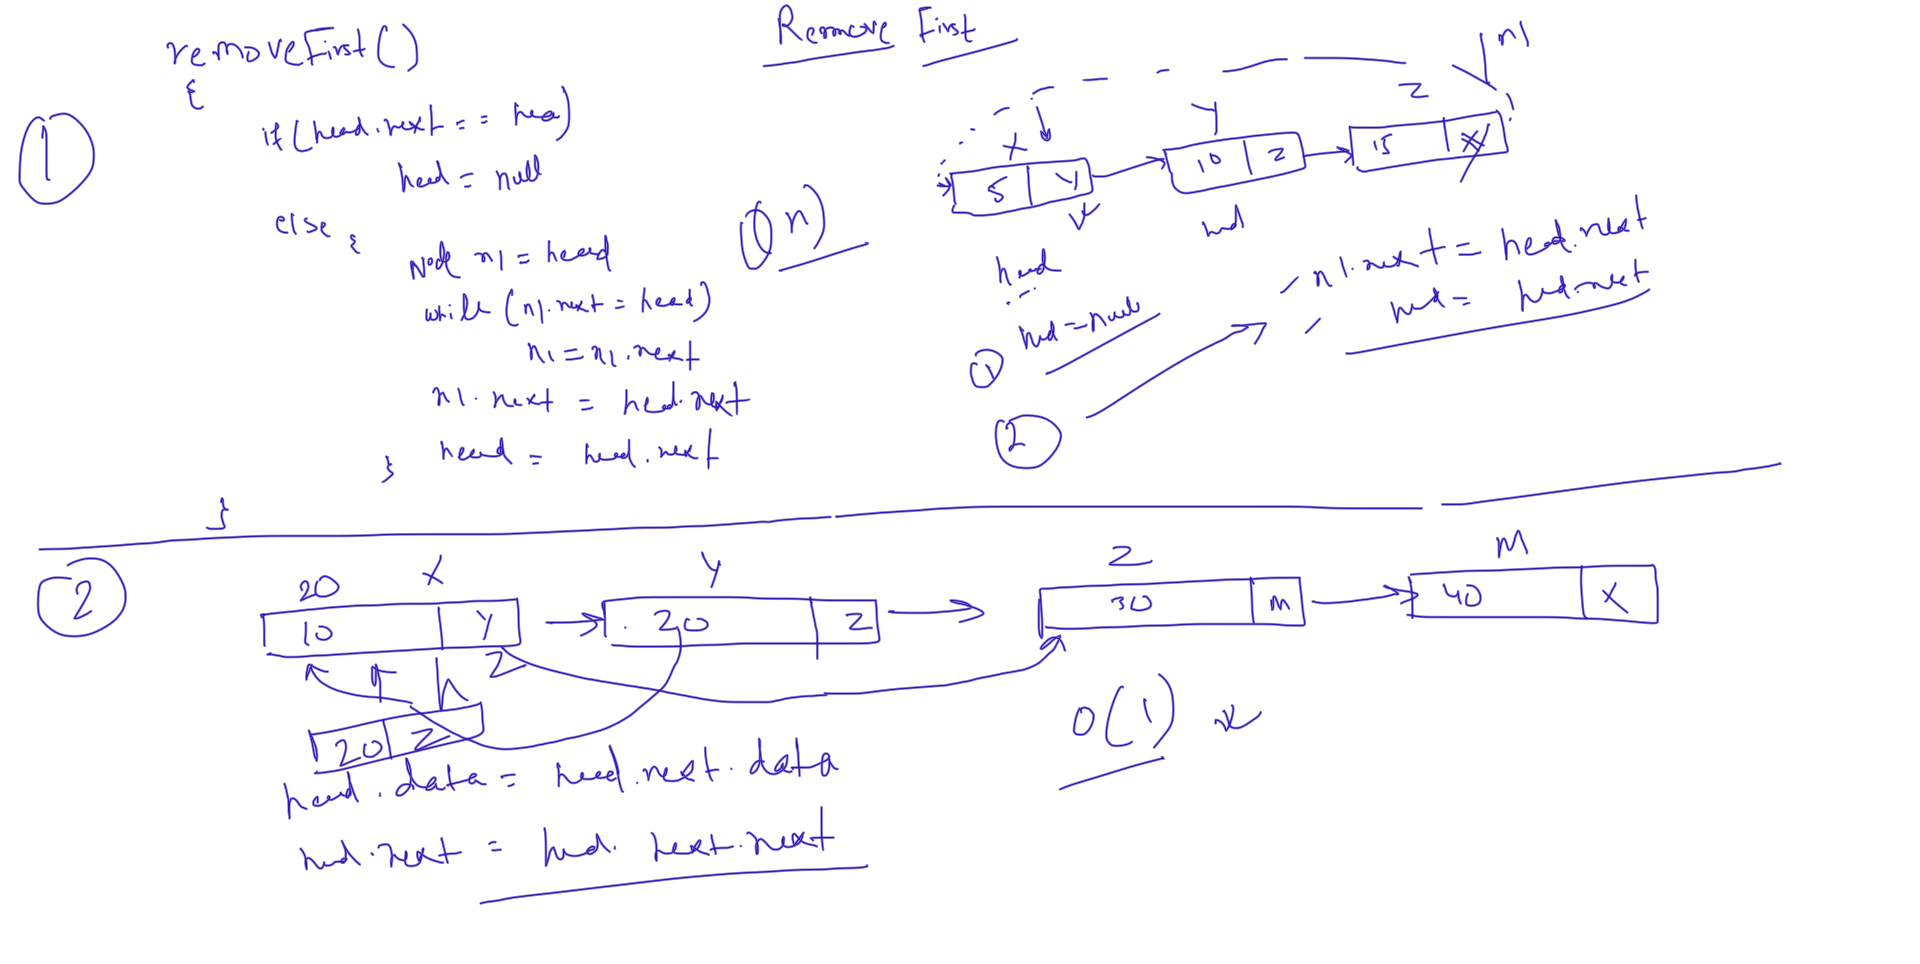 Remove First
removeFirst()
{
1
if (head.next == hea)
head = null
else {
Node n1 = head
while (n1.next = head)
n1 = n1.next
n1.next = head.next
head = head.next
}
}
O(n)
n1
X
Y
Z
5 Y
10 Z
15 X
head
hd
head = null
1
2
n1.next = head.next
head = head.next
2
20 X
Y
Z
M
10 Y
20 Z
30 M
40 X
Z
20 Z
O(1)
head.data = head.next.data
head.next = head.next.next